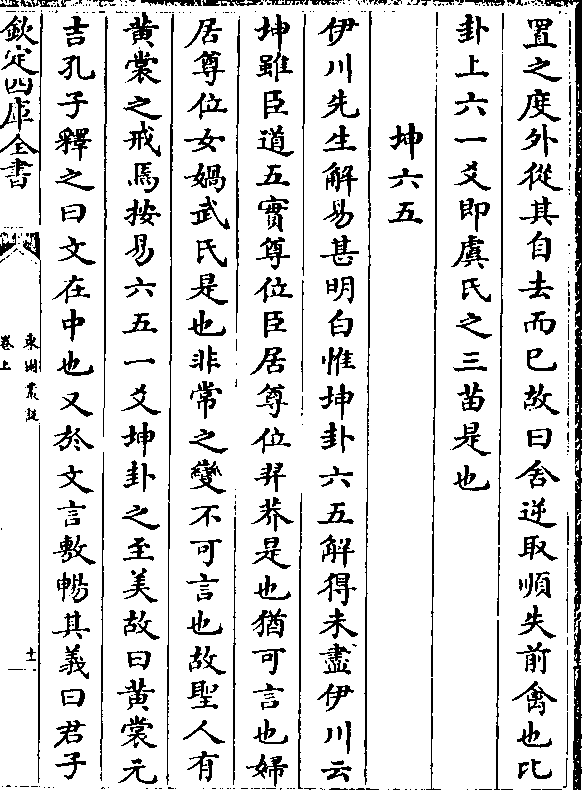 置之度外從其自去而已故曰舍逆取順失前禽也比
卦上六一爻即虞氏之三苗是也
坤六五
伊川先生解易甚明白惟坤卦六五解得未盡伊川云
坤雖臣道五實尊位臣居尊位羿莽是也猶可言也婦
居尊位女媧武氏是也非常之變不可言也故聖人有
黄裳之戒焉按易六五一爻坤卦之至美故曰黄裳元
吉孔子釋之曰文在中也又於文言敷暢其義曰君子
欽定四庫全書
東園叢説
卷上
十一